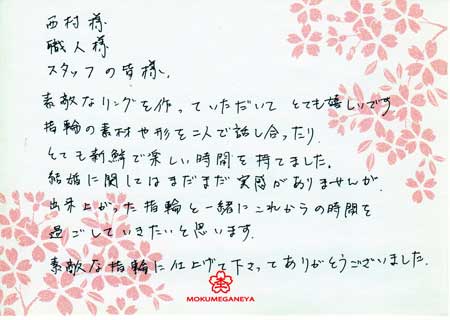 西村様
職人様
スタッフの皆様、
素敵なリングを作っていただいて とても嬉しいです
指輪の素材や形を二人で話し合ったり、
とても新鮮で楽しい時間を持てました。
結婚に関してはまだまだ実感がありませんが、
出来上がった指輪と一緒にこれからの時間を
過ごしていきたいと思います。
素敵な指輪に仕上げて下さってありがとうございました。
MOKUMEGANEYA